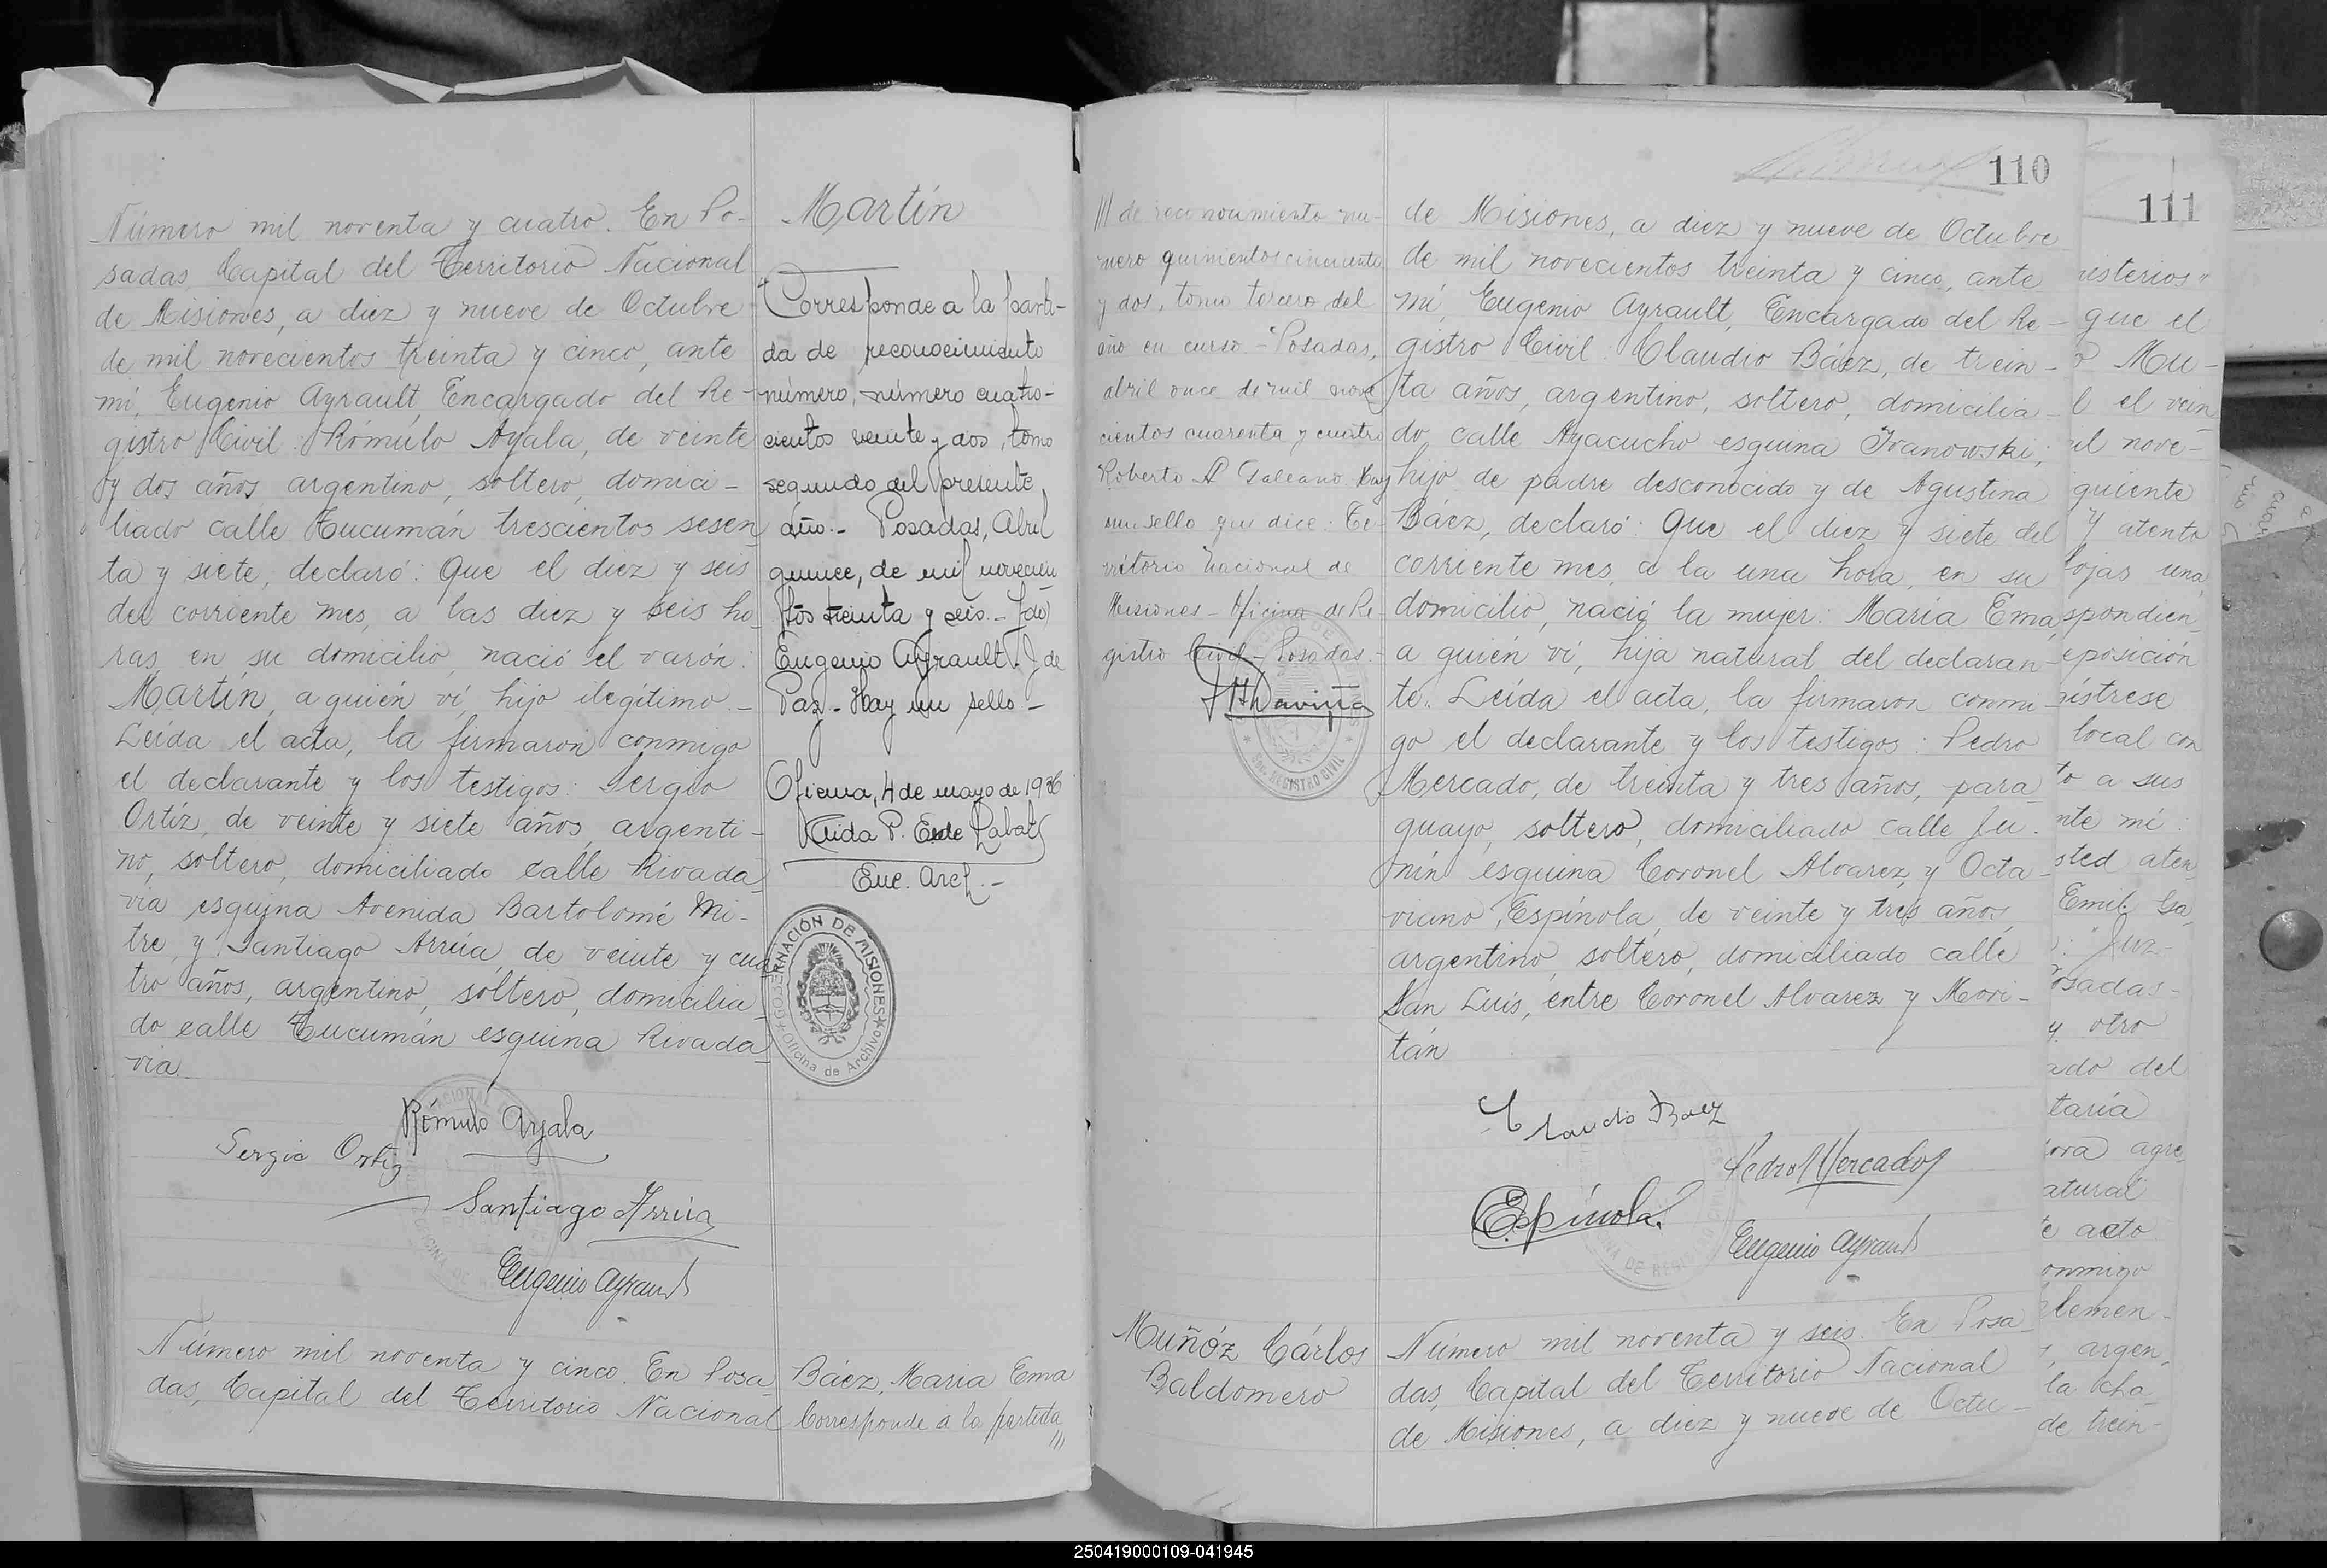 Número mil noventa y cuatro. En Po-
sadas, Capital del Territorio Nacional
de Misiones, a diez y nueve de Octubre
de mil novecientos treinta y cinco, ante
mí, Eugenio Ayrault, Encargado del Re-
gistro Civil: Rómulo Ayala, de veinte
y dos años argentino, soltero, domici-
liado calle Tucumán trescientos sesen
ta y siete, declaró: Que el diez y seis
del corriente mes, a las diez y seis ho-
ras, en su domicilio, nació el varón:
Martín, a quién ví, hijo ilegítimo.-
Leída el acta, la firmaron conmigo
el declarante y los testigos: Sergio
Ortíz, de veinte y siete años, argenti-
no, soltero, domiciliado calle Rivada-
via esquina Avenida Bartolomé Mi-
tre, y Santiago Arrúa, de veinte y cua-
tro años, argentino, soltero, domicilia-
do calle Tucumán esquina Rivada-
via.
Rómulo Ayala
Sergio Ortiz
Santiago Arrúa
Eugenio Ayrault
Número mil noventa y cinco. En Posa-
das, Capital del Territorio Nacional
Martín
Corresponde a la parti-
da de reconocimiento
número, número cuatro-
cientos veinte y dos, tomo
segundo del presente
año.- Posadas, Abril
quince, de mil novecien
tos treinta y seis.- fdo)
Eugenio Ayrault. J. de
Paz.- Hay un sello.-
Oficina, 4 de mayo de 1936
Aida P. de Labat
Enc. Arch.-
GOBERNACIÓN DE MISIONES
Oficina de Archivo
Báez, Maria Ema
Corresponde a la partida
///
110
/// de reconocimiento nu-
mero quinientos cincuenta
y dos, tomo tercero del
año en curso - Posadas,
abril once de mil nove
cientos cuarenta y cuatro
Roberto A Galeano. Hay
un sello que dice: Te-
rritorio Nacional de
Misiones - Oficina de Re-
gistro Civil - Posadas.-
REGISTRO CIVIL
de Misiones, a diez y nueve de Octubre
de mil novecientos treinta y cinco, ante
mí, Eugenio Ayrault, Encargado del Re-
gistro Civil: Claudio Báez, de trein-
ta años, argentino, soltero, domicilia-
do, calle Ayacucho esquina Ivanowski;
hijo de padre desconocido y de Agustina
Báez, declaró: Que el diez y siete del
corriente mes, a la una hora, en su
domicilio, nació la mujer: María Ema,
a quién ví, hija natural del declaran-
te. Leída el acta, la firmaron conmi-
go el declarante y los testigos: Pedro
Mercado, de treinta y tres años, para-
guayo, soltero, domiciliado calle Ju-
nín esquina Coronel Alvarez, y Octa-
viano Espínola, de veinte y tres años,
argentino, soltero, domiciliado calle
San Luis, entre Coronel Alvarez y Mori-
tán
Claudio Baez
Pedro Mercado
Espínola
Eugenio Ayrault
Muñóz Cárlos
Baldomero
Número mil noventa y seis. En Posa-
das, Capital del Territorio Nacional
de Misiones, a diez y nueve de Octu-
111
isterios"
que el
Mu-
l el vein
il nove-
guiente
y atento
fojas una
spondien
eposición
ístrese
local con
to a sus
nte mí:
sted aten
Emil Ga
Juz-
osadas-
y otro
ado del
taría
ora agre
atural
e acto
onmigo
lemen-
, argen
la cha
de trein-
250419000109-041945